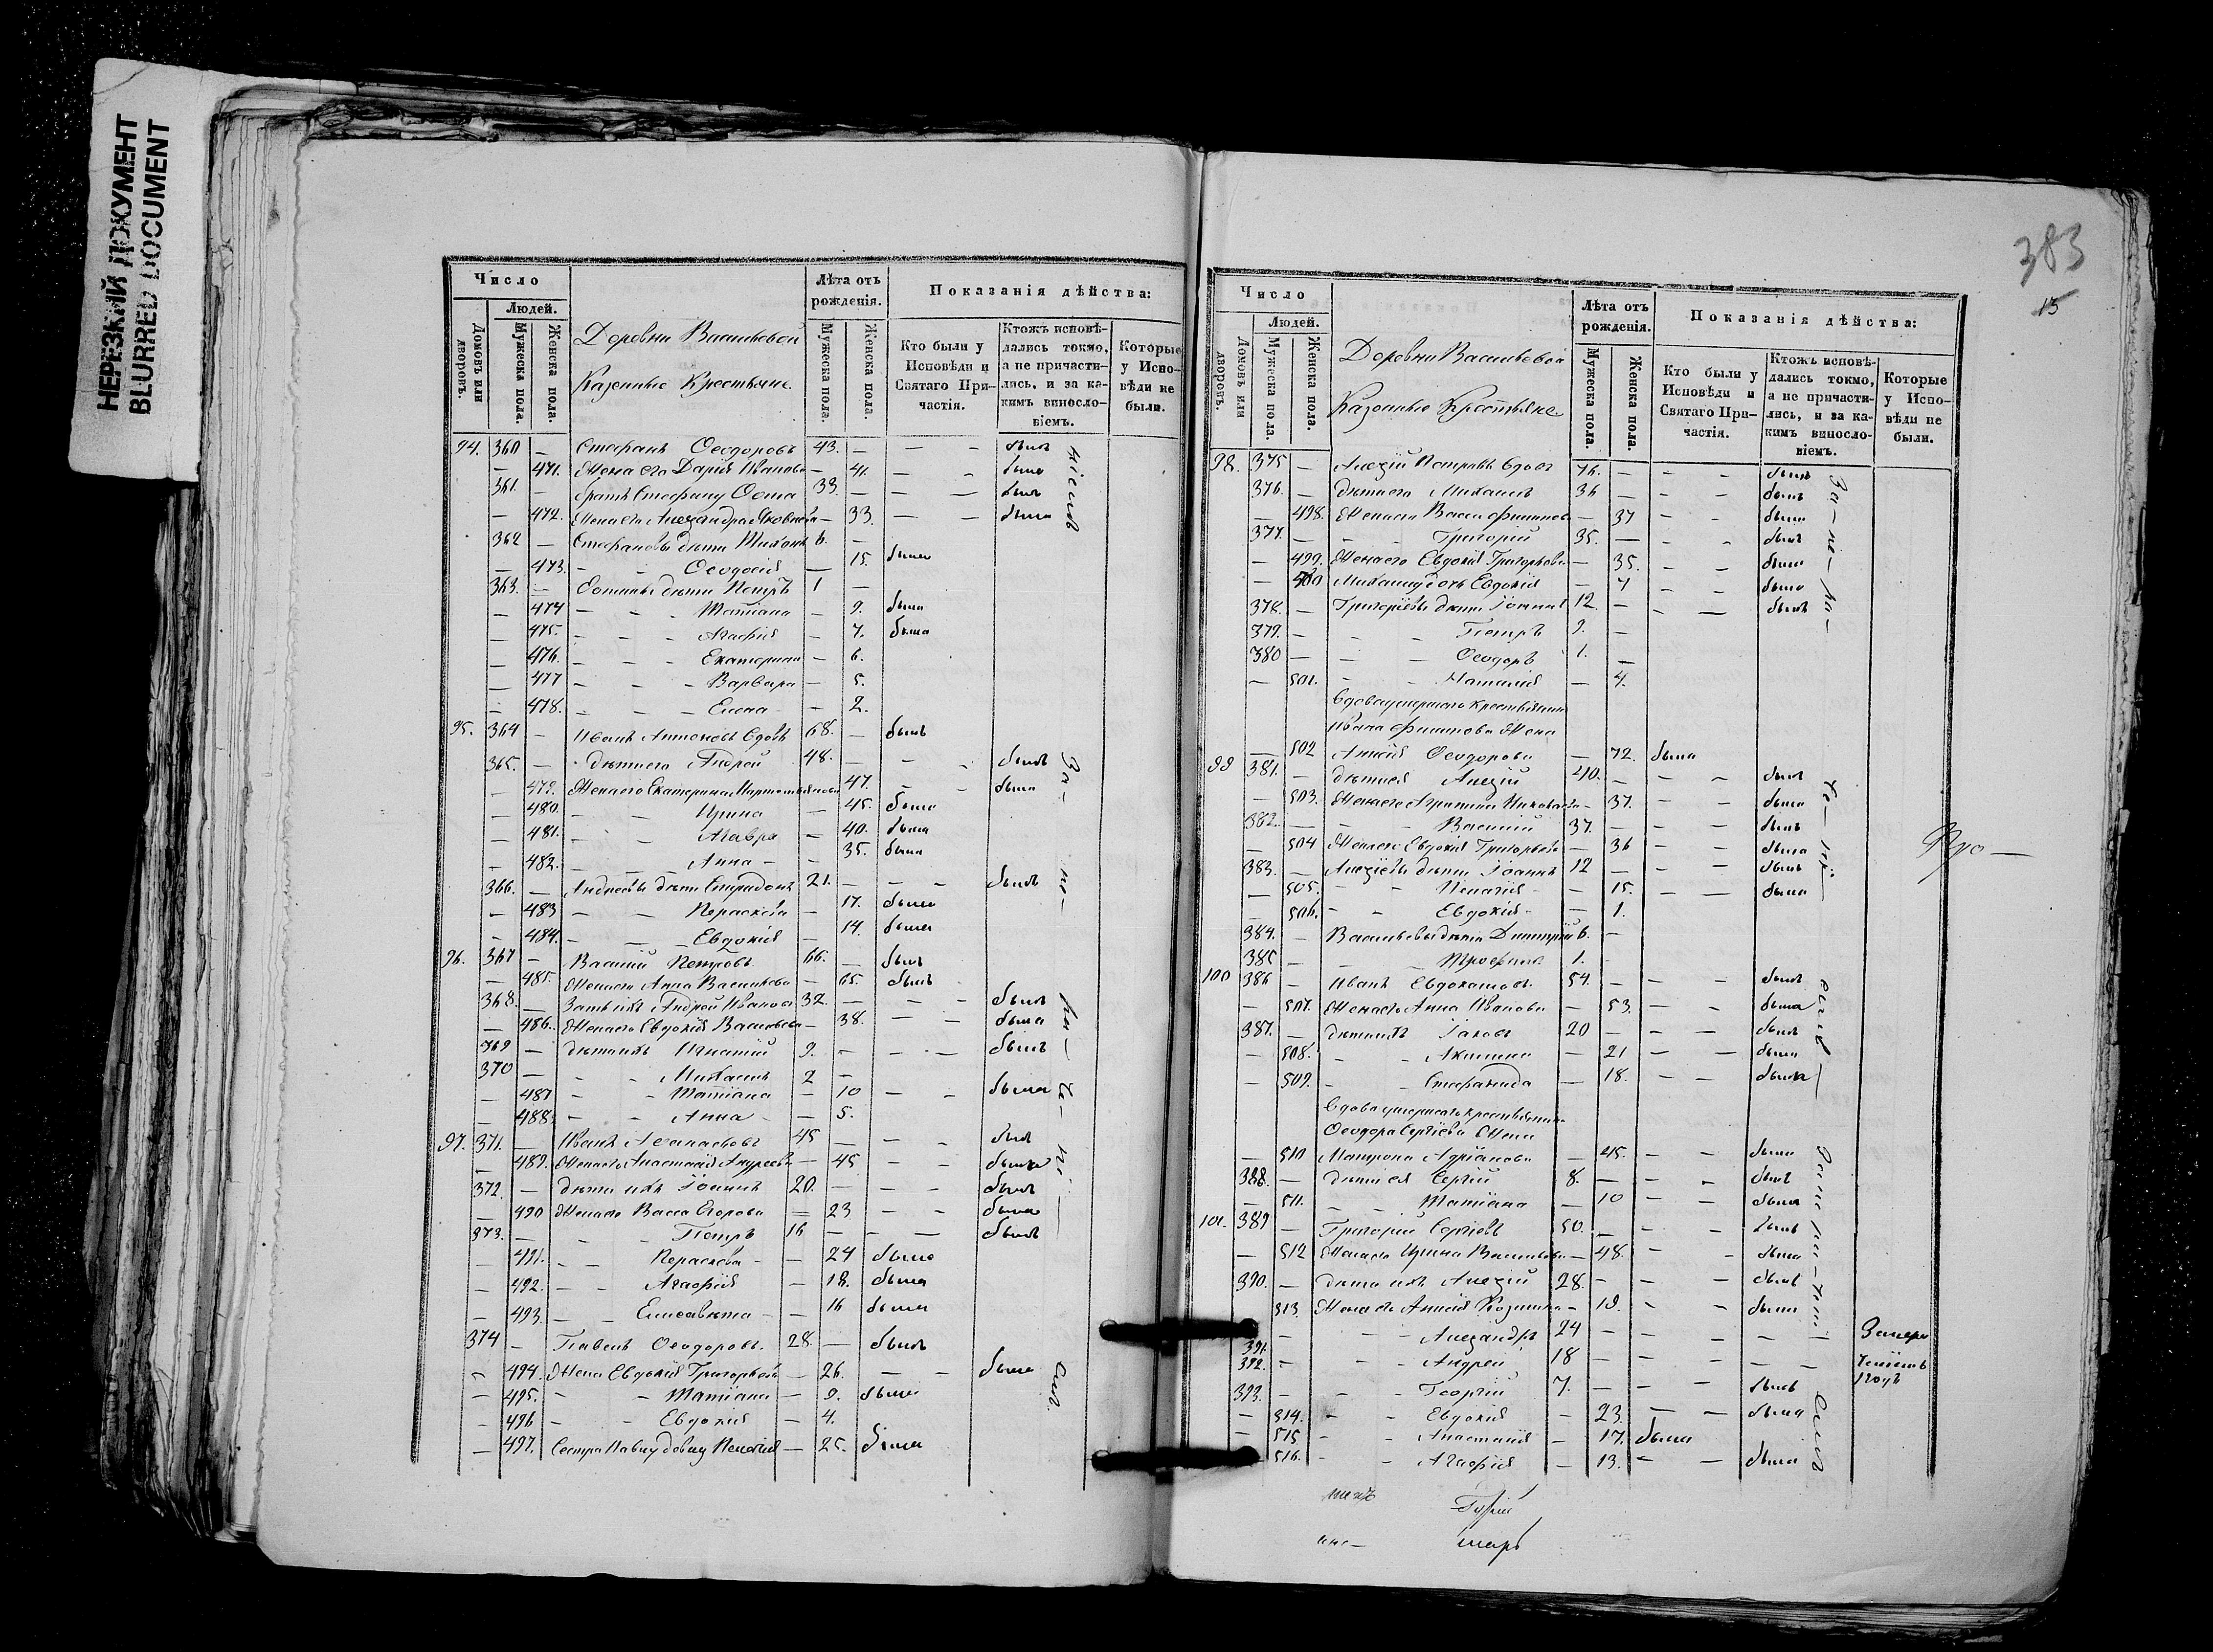 НЕРЕЗКИЙ ДОКУМЕНТ
BLURRED DOCUMENT
Число
Людей.
Домовъ или дворовъ.
Мужеска пола.
Женска пола.
Деревни Васильевой
Казенные Крестьяне
Лѣта отъ рожденія.
Мужеска пола.
Женска пола.
Показанія дѣйства:
Кто были у Исповѣди и Святаго Причастія.
Ктожъ исповѣдались токмо, а не причастились, и за какимъ винословіемъ.
Которые у Исповѣди не были.
94. 360 — Стефанъ Ѳеодоровъ 43. — — - былъ
— 471. Жена его Дарія Иванова — 41. - была
361. — братъ Стефану Ѳома 33. — — — былъ
— 472. Жена его Александра Яковлева — 33. — - была
362 — Стефановы дѣти Тихонъ 6. —
— 473. - - Ѳеодосія — 15. была
363. — Ѳомины дѣти Петръ 1 —
— 474 - - - Татіана — 9. была
— 475. - - - Агафія — 7. была
— 476. - - - Екатерина — 6.
— 477 - - - Варвара — 5.
— 478. - - - Елена — 2.
95. 364 — Иванъ Антоновъ вдовъ 68. — былъ
365. — дѣти его Андрей 48. — - - былъ
— 479. Жена его Екатерина 47. - - была
— 480. - - Ирина — 45. была
— 481. - - Мавра — 40. была
— 482. - - Анна — 35. была
366. — Андреевы дѣти Спиридонъ 21. — — - былъ
— 483 - - Параскева — 17. была
— 484. - - Евдокія — 14. была
96. 367 — Василій Петровъ 66. — былъ
— 485. Жена его Анна Васильева — 65. былъ
368. — Зять ихъ Андрей Ивановъ 32. — — - былъ
— 486. Жена его Евдокія Васильева — 38. — - была
369 — дѣти ихъ Игнатій 9. — - — былъ
370 — - - Михаилъ 2 —
— 487 - - Татіана — 10 — - была
— 488. - - Анна — 5.
97. 371. — Иванъ Аѳанасьевъ 45 — — - былъ
— 489. Жена его Анастасія Андреева — 45 — - была
372. — дѣти ихъ Іоаннъ 20. — — - былъ
— 490 Жена его Васса Егорова — 23 - - была
373. — - - Петръ 16 — - — былъ
— 491. - - Параскева — 24 была
— 492. - - Агафія — 18. была
— 493. - - Елисавета — 16 была
374 — Павелъ Ѳеодоровъ 28. — былъ
— 494. Жена Евдокія Григорьева — 26. — - была
— 495. - - Татіана — 9. была
— 496 - - Евдокія — 4.
— 497. Сестра Павлу Пелагія — 25. была
383
15
Число
Людей.
Домовъ или дворовъ.
Мужеска пола.
Женска пола.
Деревни Васильевой
Казенные Крестьяне
Лѣта отъ рожденія.
Мужеска пола.
Женска пола.
Показанія дѣйства:
Кто были у Исповѣди и Святаго Причастія.
Ктожъ исповѣдались токмо, а не причастились, и за какимъ винословіемъ.
Которые у Исповѣди не были.
98. 375 — Алексій Петровъ вдовъ 76. — - - былъ
376. — дѣти его Михаилъ 36 — - - былъ
— 498. Жена его Васса Филипова — 37 - - была
377. — - - Григорій 35. — - - былъ
— 499. Жена его Евдокія Григорьева — 35. - - была
— 500 Михаилу дочь Евдокія — 7 - - была
378. — Григорьевы дѣти Іоаннъ 12. — - — былъ
379. — - - Петръ 9. —
380 — - - Ѳеодоръ 1. —
— 501. - - Наталія — 4.
вдова умершаго крестьянина
Ивана Филипова Жена
— 502 Анисія Ѳеодорова — 72. была
99 381. — дѣти ея Алексій 40. — - - былъ
— 503. Жена его Агрипина — 37. - — была
382. — - - Василій 37. — - - былъ
— 504 Жена его Евдокія Григорьева — 36 - — была
383. — Алексіевы дѣти Іоаннъ 12 — - - былъ
— 505. - - Пелагія — 15. — — была
— 506. - - Евдокія — 1.
384. — Васильевы дѣти Димитрій 6. —
385 — - - Трофимъ 1. -
100 386 — Иванъ Евдокимовъ 54. — - - былъ
— 507. Жена его Анна Иванова — 53. — - была
387. — дѣти ихъ Іаковъ 20 — - - былъ
— 508. - - Акилина — 21 — — была
— 509. - - Стефанида — 18. — - была
вдова умершаго крестьянина
Ѳеодора Сергіева Жена
— 510 Матрона Адріанова — 45. - - была
388. — дѣти ея Сергій 8. — - - былъ
— 511. - - Татіана — 10 - - была
101. 389 — Григорій Сергіевъ 50. — - - былъ
— 512 Жена его Ирина Васильева — 48. - - была
390. — дѣти ихъ Алексій 28. - - - былъ
513. Жена его Анисія — 19. - - была
391. - - Александръ 24 - - - -
392. - - Андрей 18 - - - -
393. - - Георгій 7. - - - былъ
— 514. - - Евдокія — 23. — — была
— 515 - - Анастасія — 17. была
516. - - Агафія — 13. - — была